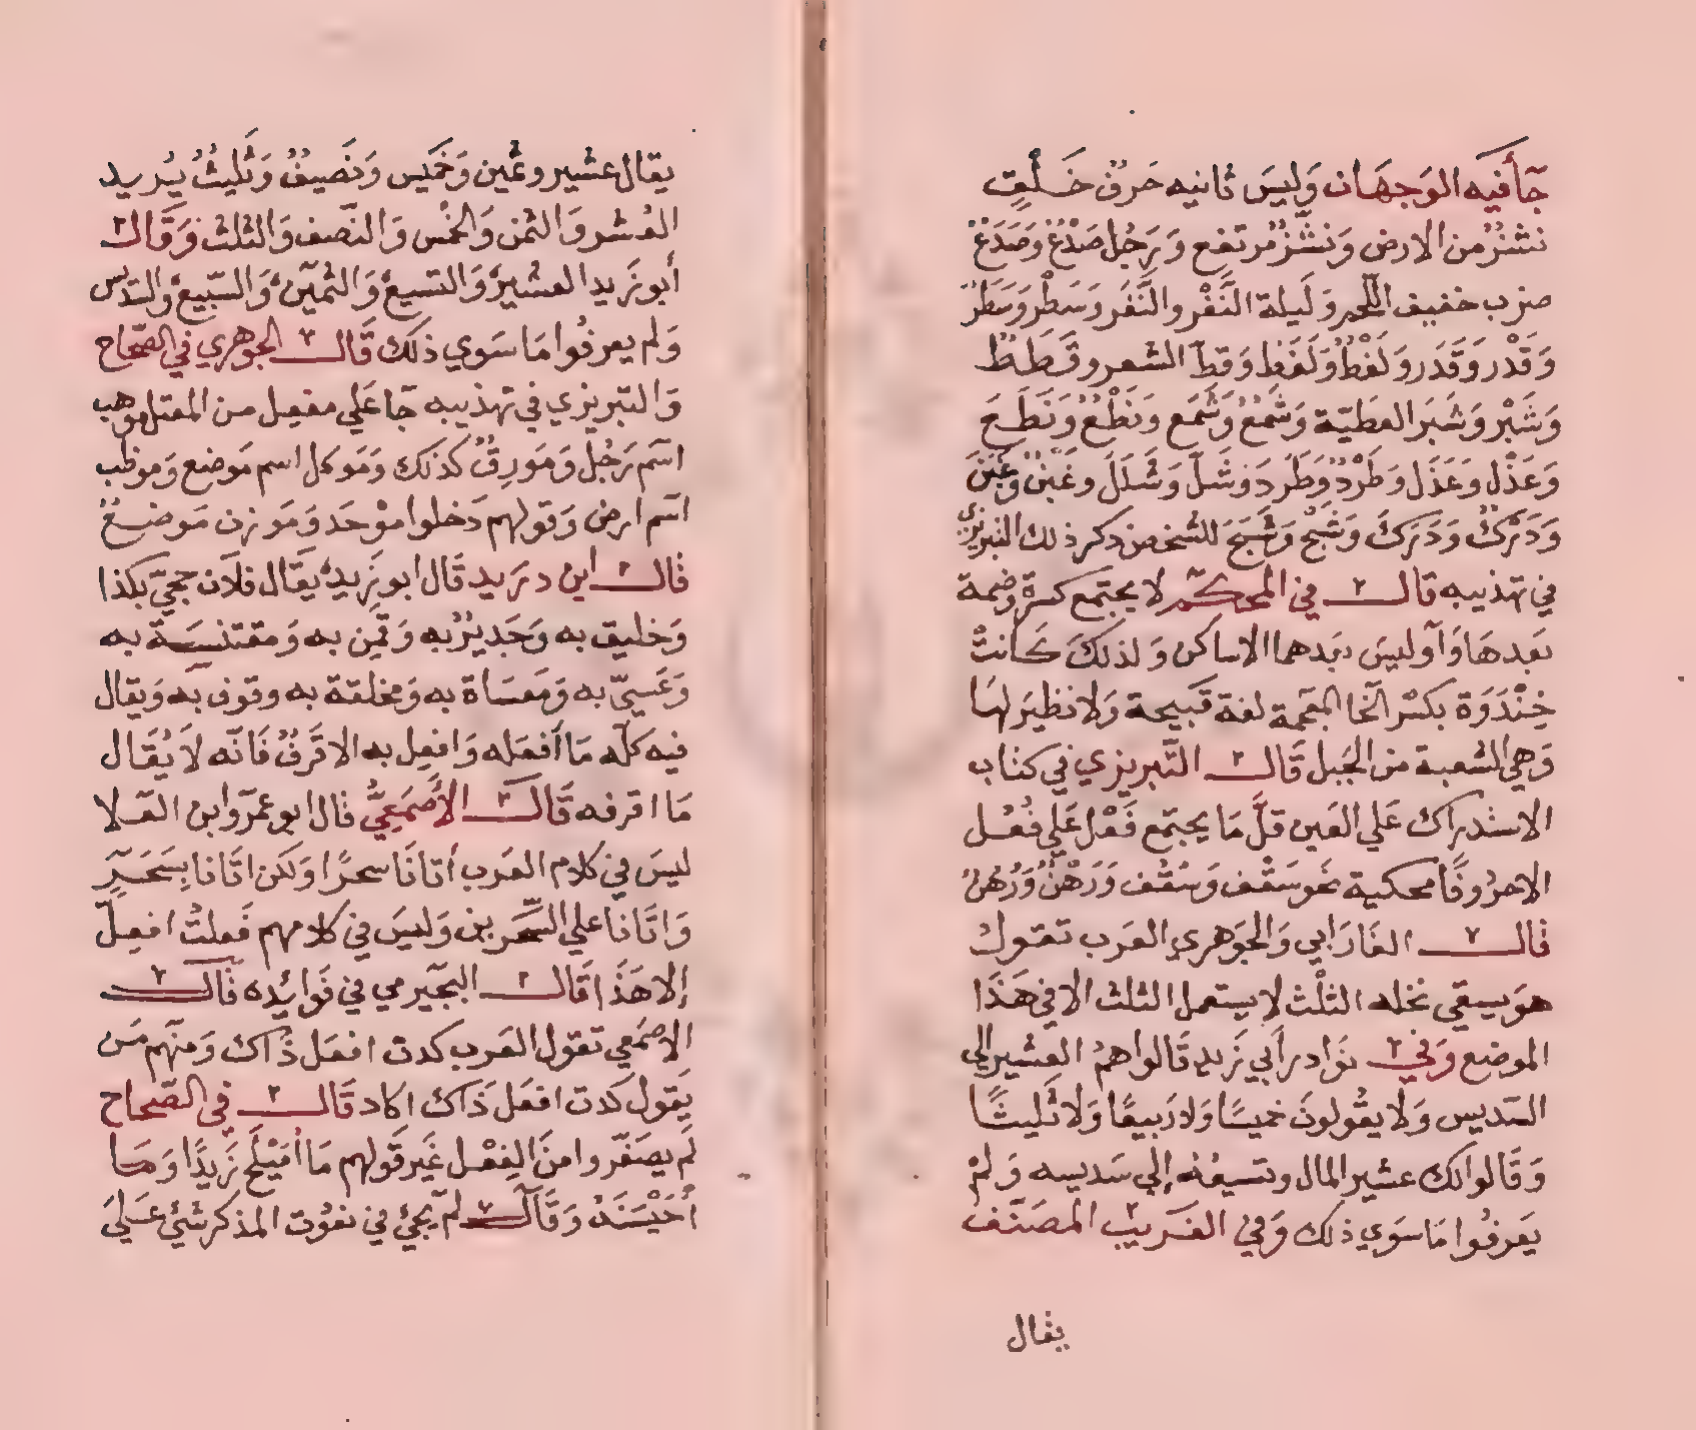 جآ فيه الوَجهَان وَليسَ ثانيه حَرفَ خَلْقٍ
نشْزُ من الارض وَنشَزٌ مُرتفع وَرَجُل صَدْعٌ وَصَدَعٌ
ضرب خفيف اللحم وَليلة النَّفْر والنَّفَر وَسَطْر وَسَطَرَ
وَقَدْر وَقَدَر وَلَغْطٌ وَلَغَط وَقطّ الشعر وقَطَطٌ
وَشَبْر وَشَبَر العطيّة وَشَمْعٌ وَشَمَع ونَطْعٌ وَنَطَعَ
وَعَذْل وعَذَل وطَرْدٌ وَطَرَدَ وَشَلّ وَشَلَلَ وغَبْنٌ وَغَبَنَ
وَدَرْكٌ وَدَرَكَ وَشَبْحٌ وَشَبَحَ للشخص ذكر ذلك التبريزي
في تهذيبه قالـــ في المحكم لا يجتمع كسرة وضمة
بعدهَا وَآو ليسَ بَيدهما الا ساكن وَلذلكَ كانتْ
خِنْدَوَة بكسْر الخا المعجمة لغة قبيحة وَلا نظيرَ لهَا
وَهي الشعبة من الجَبل قَالـــ التَّبريزي في كتاب
الاستدراك عَلي العَين قلَّ مَا يجتمع فَعْل عَلي فُعُل
الا حروفًا محكية نحو سَقْف وَسُقُف وَرَهْنٌ وَرُهُنٌ
قالـــ الفَارَابي وَالجوَهري العَرب تقولُ
هوَ يسقي نخله الثلْث لا يستعمل الثلث الا في هَذَا
الموضع وَفي نَوَادر أبي زَيد قَالوا همُ العشير إلى
السّديس وَلا يقُولونَ خميسًا وَلا رَبيعًا وَلا ثَليثًا
وَقَالوا لك عشير المال وتسيعُهُ إلي سَديسه وَلمْ
يَعرفُوا مَا سَوَي ذلك وَفي الغَريب المصَنّف
يقال
يقال عشير وثمين وَخَميس وَنَصيفٌ وَثَليثٌ يُريد
العُشر وَالثمن وَالخمْس وَالنّصف وَالثلث وَقَالـــ
أبو زَيد العشيرٌ وَالتسيعٌ وَالثمينٌ وَالسّبيعٌ وَالسّديس
وَلم يعرفُوا مَا سَوَي ذلكَ قَالـــ الجَوهَري في الصّحَاح
وَالتبريزي في تهذيبه جَا عَلي مفعِل من المعتل موهب
اسْم رَجُل وَمَورقٌ كذلك وَمَوكل اسم مَوضع وَموظب
اسْم ارض وَقولهم دَخلوا موْحَد وَمَوزن مَوضعٌ
قالـــ ابن دريد قَال ابو زَيد يقَال فلَان حَجيّ بكذا
وَخليق به وَجَديرٌ به وَقمِن به وَمقتنسَة به
وَعَسيّ به وَمَعسَاة به وَمخلقة به وقوف به وَيقال
فيه كلّه مَا أفعَله وَافعِل به الا قَرفُ فَانّه لاَ يُقَال
مَا اقرفه قَالـــ الأَصمَعيُّ قال ابو عمَرو ابن العَلا
ليسَ في كلام العَرب أتانَا سحرًا وَلكن اتَانا بِسَحَرٍ
وَاتَانا علي السَّحَرين وَليسَ في كلامهم فَعلتُ افعِلُ
إلا هَذَا قَالـــ البجيرمي في فَوَائِده قَالـــ
الاصمَعي تقول العَرب كدت افعَل ذَاك وَمنهم مَن
يَقول كُدت افعَل ذَاك اكاد قَالـــ في الصّحاح
لَم يصَغّروا منَ الفعْل غَير قَولهم مَا أمَيْلَح زَيدًا وَمَا
أُحَيْسَنَهُ وَقَالـــ لمْ يجئ في نعُوت المذكر شيء عَليَ